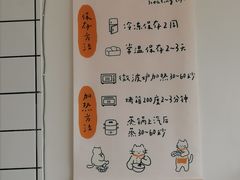 保存方法
冷冻保存2周
常温保存2-3天
加热方法
微波炉加热30-60秒
烤箱200度2-3分钟
蒸锅上汽后
蒸30-60秒